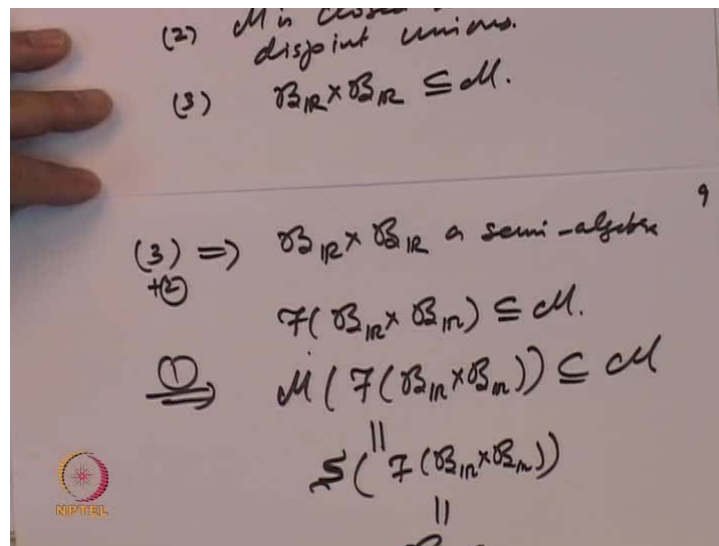 (2) M is closed
disjoint unions.
(3) 𝓑_ℝ × 𝓑_ℝ ⊆ M.
9
(3) ⇒ 𝓑_ℝ × 𝓑_ℝ a semi-algebra
+(2)
𝓕(𝓑_ℝ × 𝓑_ℝ) ⊆ M.
① ⇒ M(𝓕(𝓑_ℝ × 𝓑_ℝ)) ⊆ M
||
S(𝓕(𝓑_ℝ × 𝓑_ℝ))
||
NPTEL